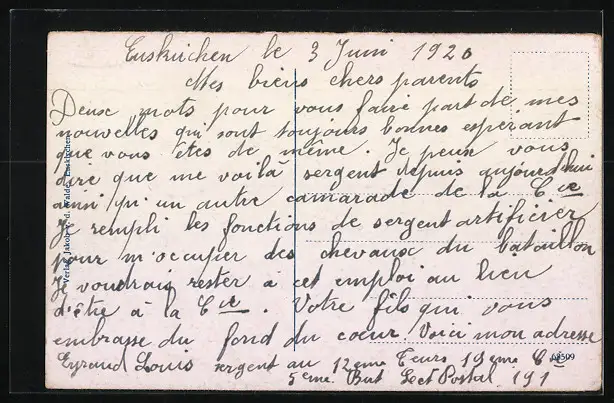 Euskirchen le 3 Juni 1920
Mes biens chers parents
Deux mots pour vous faire part de mes
nouvelles qui sont toujours bonnes espérant
que vous êtes de même. Je peux vous
dire que me voilà sergent depuis aujourd'hui
ainsi qu'un autre camarade de la Cie
Je rempli les fonctions de sergent artificier
pour m'occuper des chevaux du bataillon
Je voudrais rester à cet emploi au lieu
d'être à la Cie. Votre fils qui vous
embrasse du fond du cœur. Voici mon adresse
Eyraud Louis sergent au 12eme 19eme Cie
5eme Bat Sect Postal. 191
Verlag Jakob v. d. Walde, Euskirchen